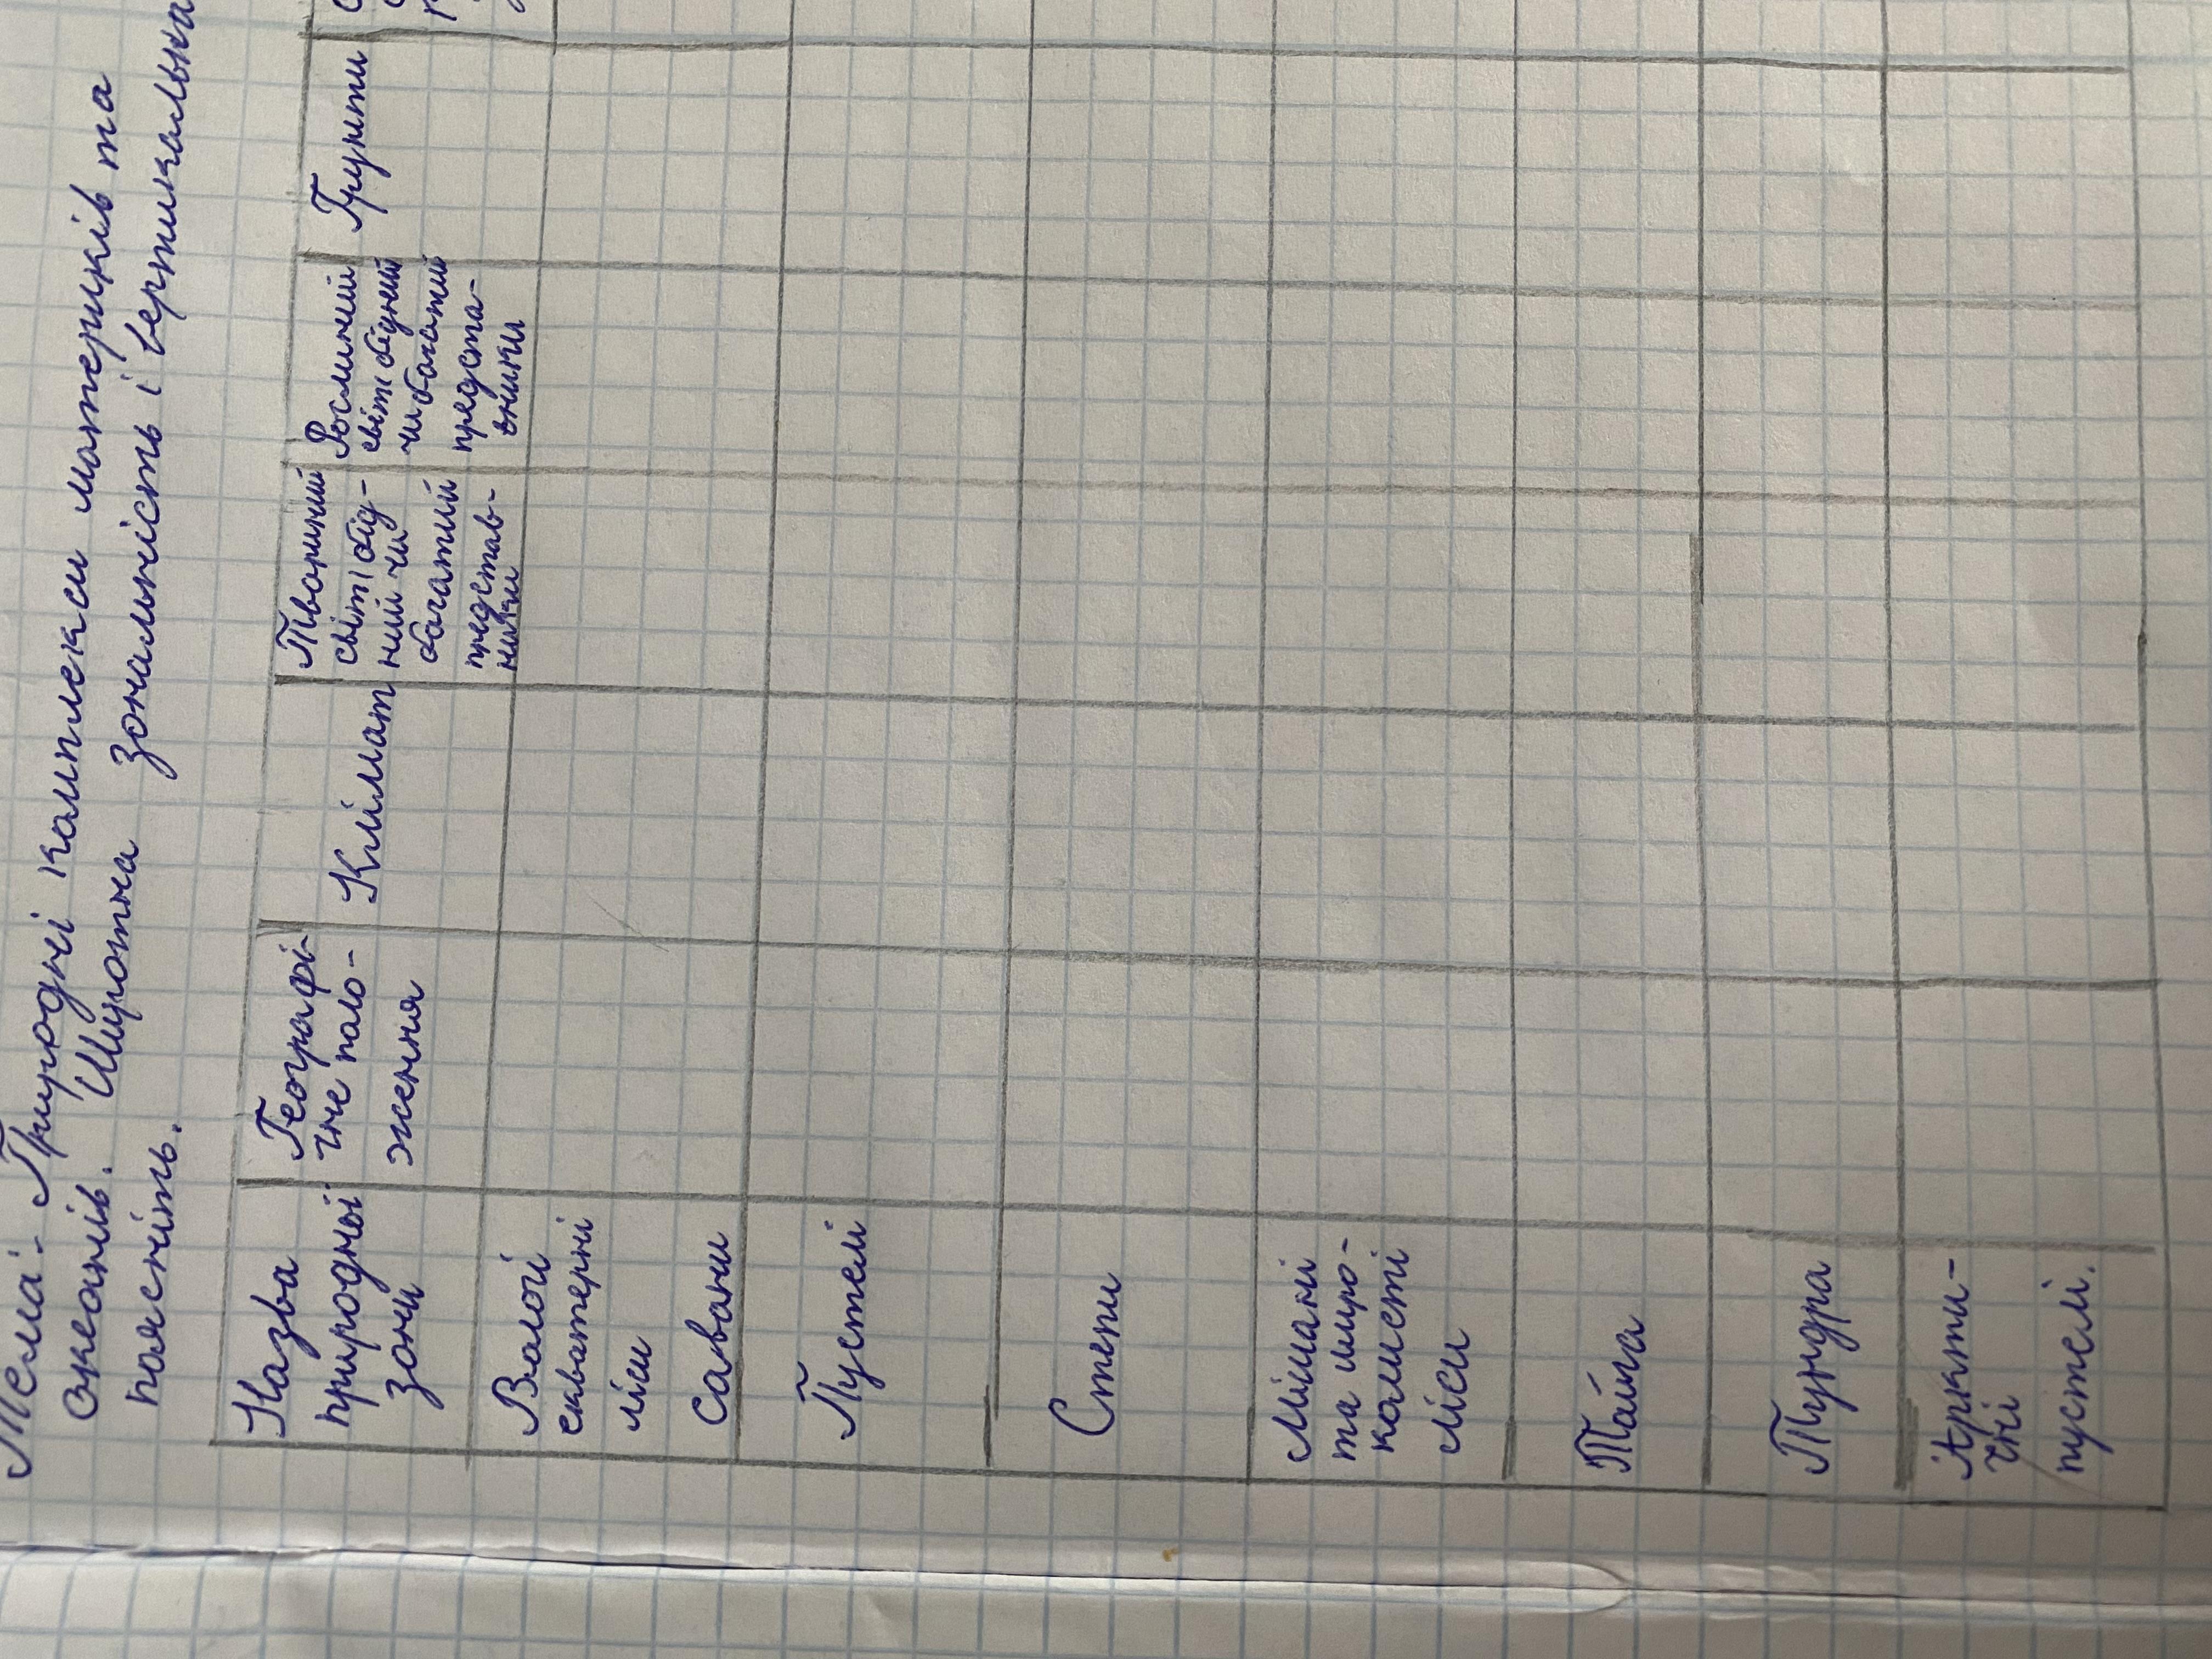 Тема: Природні комплекси материків та
океанів. Широтна зональність і вертикальна
поясність.
Назва
природної
зони
Географі-
чне поло-
ження
Клімат
Тваринний
світ бід-
ний чи
багатий
представ-
ники
Рослиний
світ бідний
чи багатий
предста-
вники
Ґрунти
Вологі
екватерні
ліси
Савани
Пустелі
Степи
Мішані
та широ-
колисті
ліси
Тайга
Тундра
Аркти-
чні
пустелі.